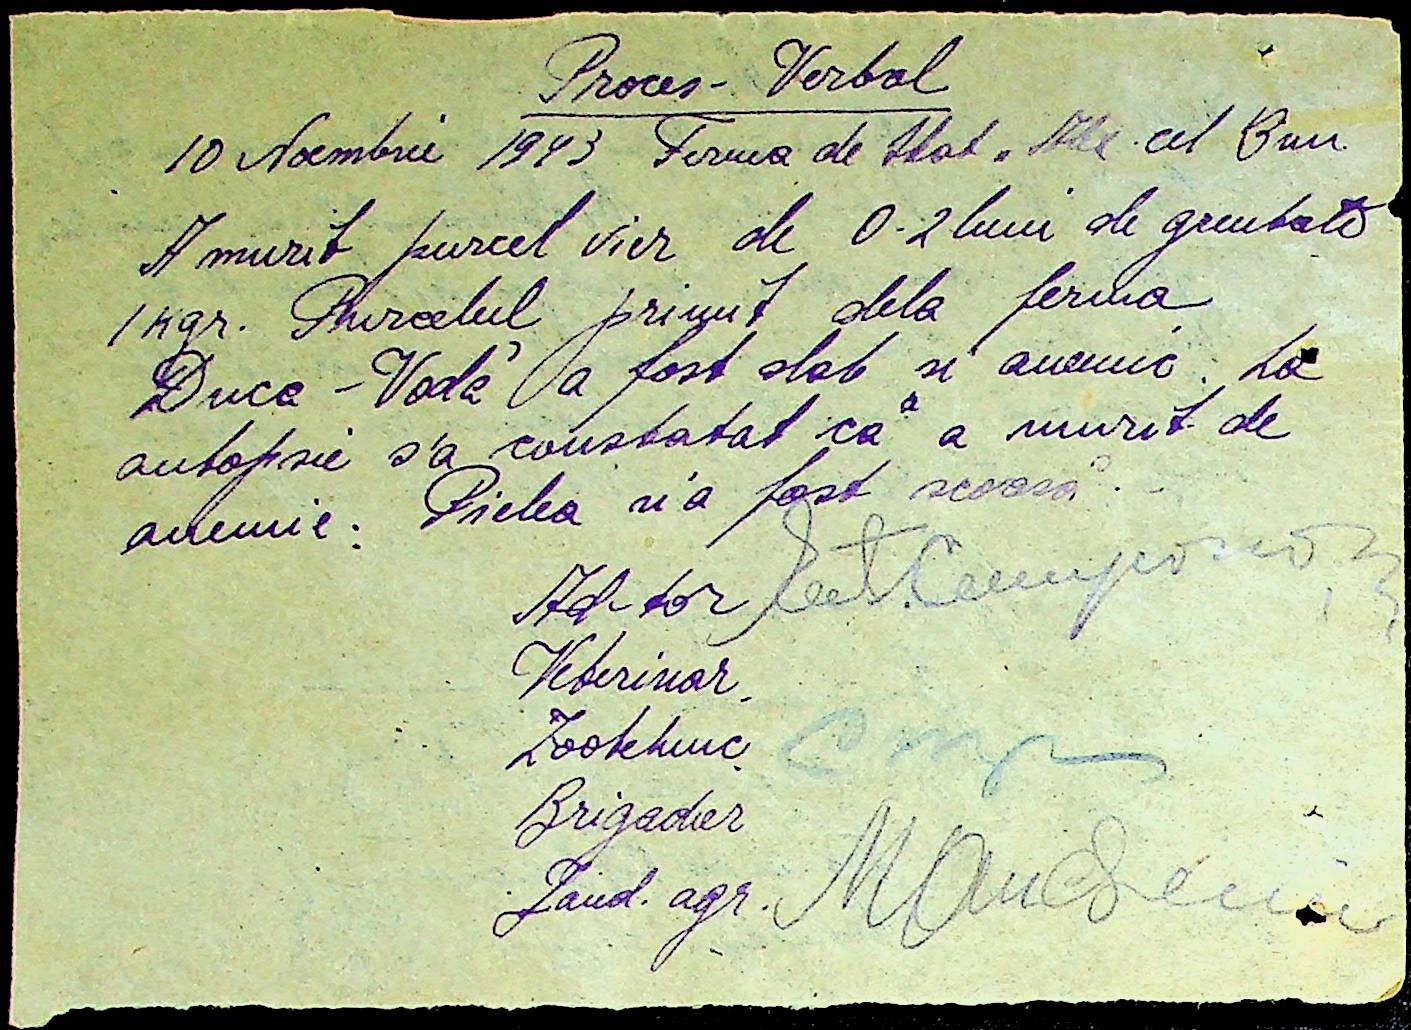 Proces-Verbal
10 Noembrie 1943 Ferma de Stat „Alex cel Bun
A murit purcel vier de 0-2 luni de greutate
1 kgr. Purcelul primit dela ferma
Duca-Vodă a fost slab si anemic. La
autopsie s'a constatat că a murit de
anemie. Pielea n'a fost scoasă.
Ad-tor
Veterinar
Zootehnic
Brigader
Jand. agr.